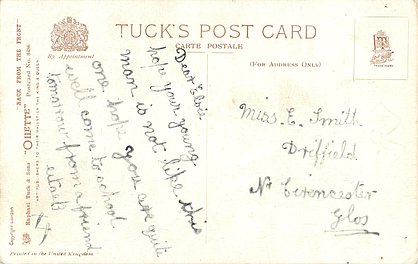 TUCK'S POST CARD
CARTE POSTALE
By Appointment
(FOR ADDRESS ONLY)
"BACK FROM THE FRONT"
"OILETTE" Postcard No. 8
Raphael Tuck & Sons
ART PUBLISHERS TO THEIR MAJESTIES THE KING & QUEEN.
Copyright London
Printed in the United Kingdom
Dear Elsie
hope your young
man is not like this
one hope you are quite
well come to school
tomorrow from a friend
Miss. E. Smith
Driffield
Nr Cirencester
Glos